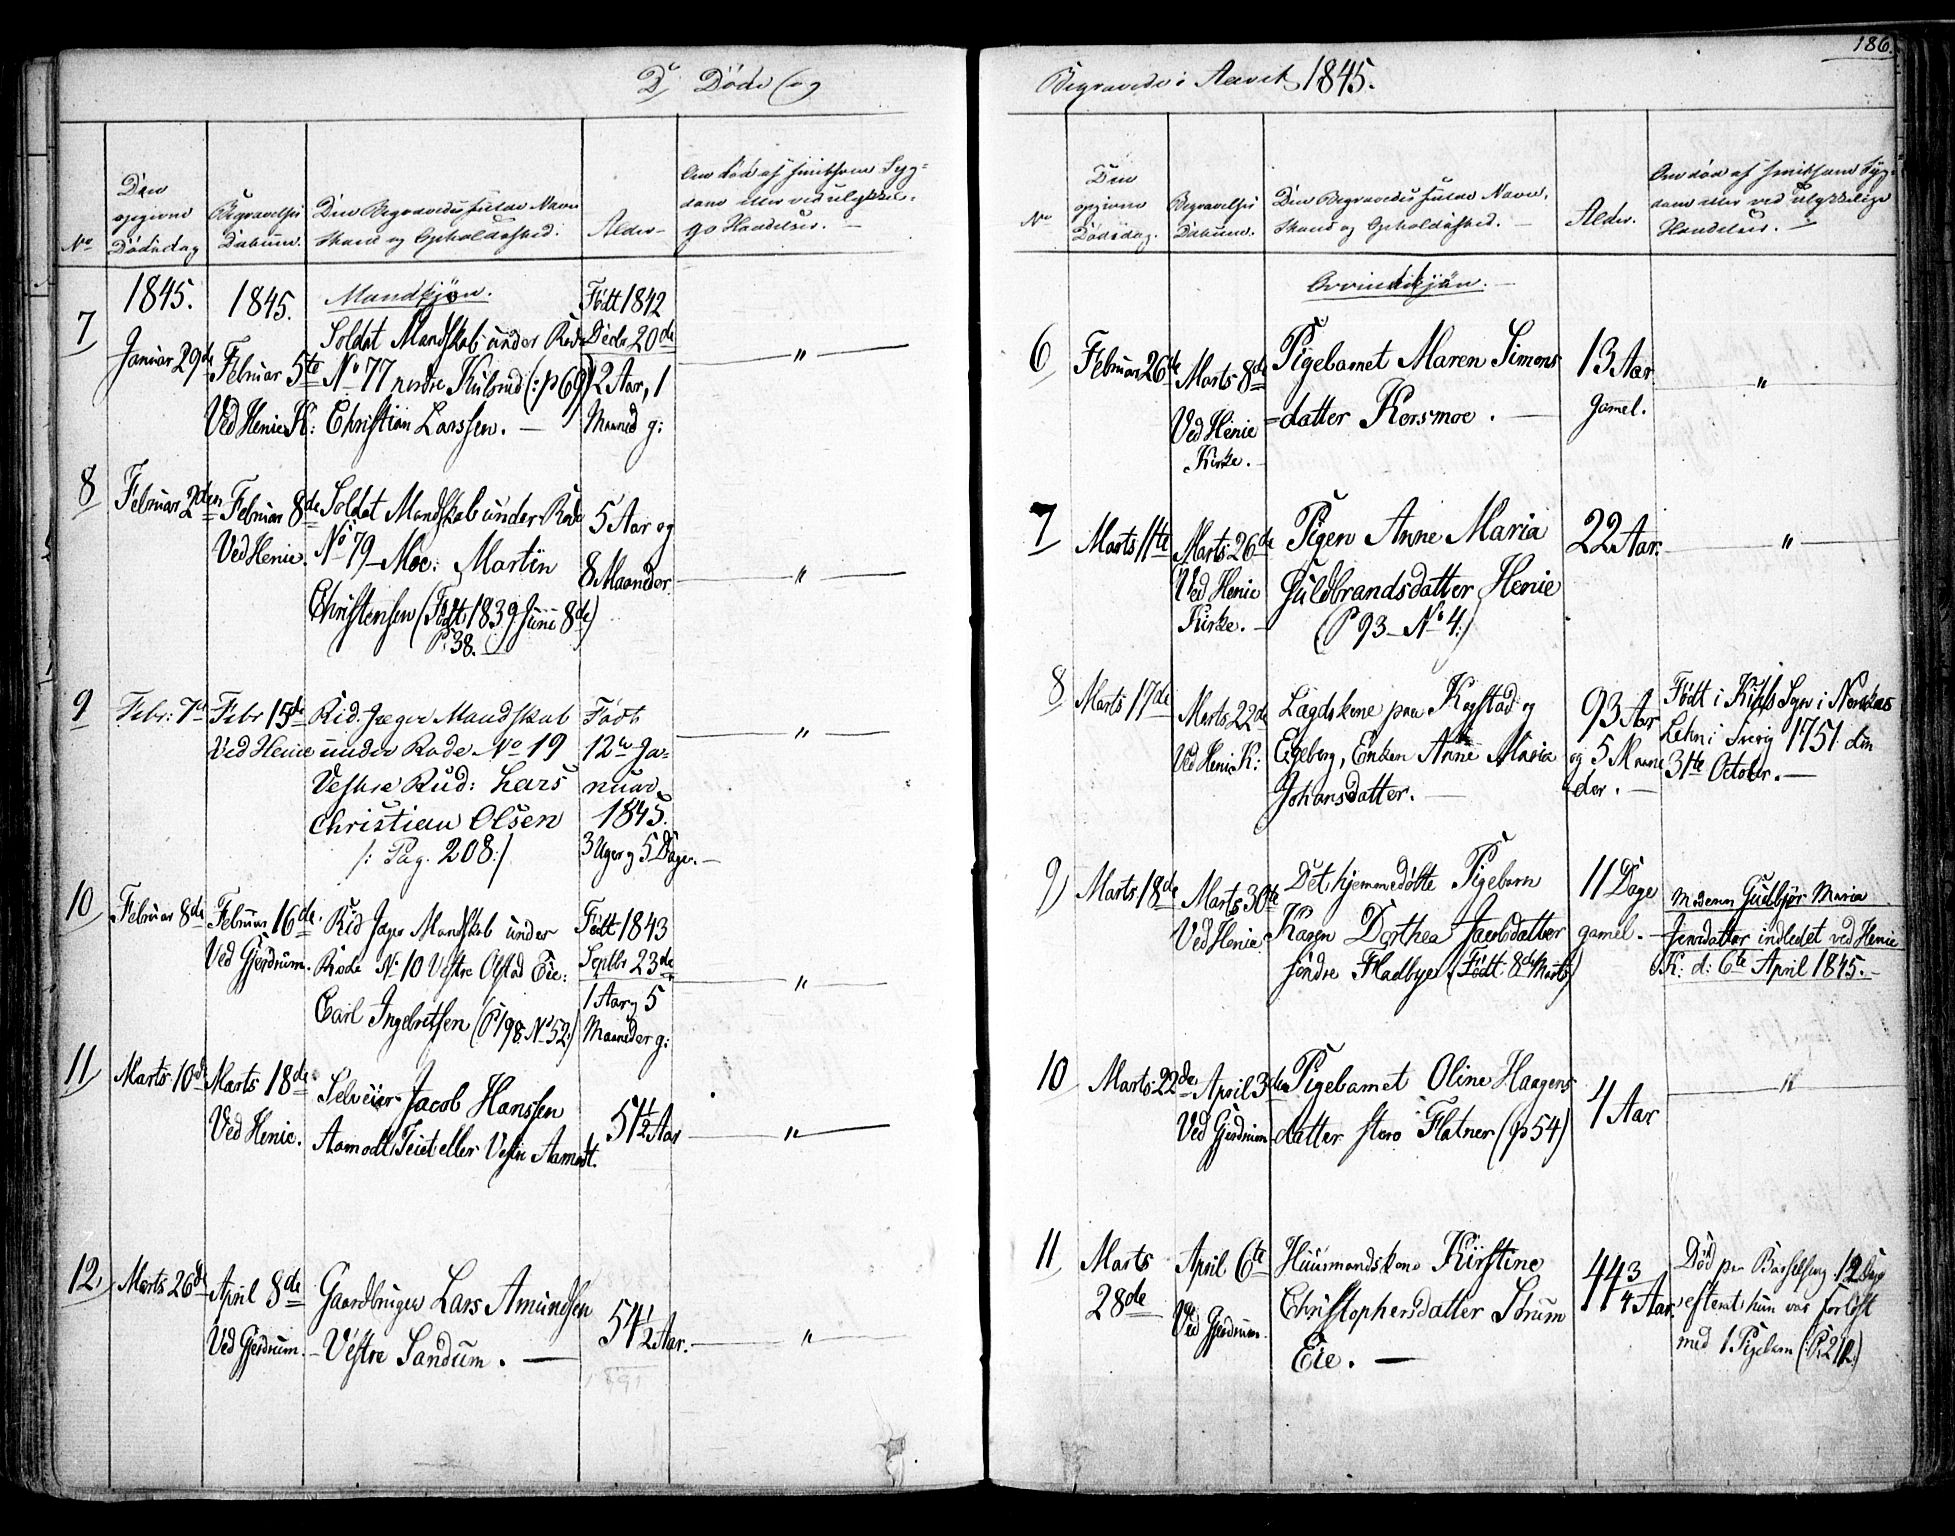 186.
De Døde og
Begravede i Aaret 1845.
No
Den
opgivne
Dødsdag
Begravelses
Datum.
Den Begravedes fulde Navn
Stand og Opholdssted.
Alder
Om død af smitsom Syg=
dom eller ved ulykkeli=
ge Hændelser.
1845.
1845.
Mandkjøn.
Født 1842
Decbr 20de
7
Januar 29de
Februar 5te
Ved Henie K:
Soldat Mandskab under Rode
No 77 nordre Kulsrud (: p 69)
Christian Larssen. —
2 Aar, 1
Maaned g:
"
8
Februar 2den
Februar 8de
Ved Henie.
Soldat Mandskab under Rode
No 79 Moe: Martin
Christensen (Født 1839 Juni 8de)
P. 38.
5 Aar og
8 Maaneder
"
9
Febr: 7de
Febr 15de
Ved Henie
Rid. Jæger Mandskab
under Rode No 19
Vestre Rud: Lars
Christian Olsen
/: Pag. 208:/
Født
12te Ja-
nuar
1845.
3 Uger og 5 Dage.
"
10
Februar 8de
Februar 16de
Ved Gjerdrum.
Rid Jæger Mandskab under
Rode No 10 Vestre Olstad Eie:
Carl Ingebretsen (P 198 No 52:)
Født 1843
Septbr 23de
1 Aar og 5
Maaneder g:
"
11
Marts 10de
Marts 18de
Ved Henie.
Selveier Jacob Hanssen
Aamodt Teiet eller Vestre Aamodt.
51 1/2 Aar
"
12
Marts 26de
April 8de
Ved Gjerdrum.
Gaardbruger Lars Amundsen
Vestre Sandum. —
54 1/2 Aar.
"
No
Den
opgivne
Dødsdag.
Begravelses
Datum.
Den Begravedes fulde Navn,
Stand og Opholdssted. —
Alder.
Om død af smitsom Syg=
dom eller ved ulykkelige
Hændelser. —
Qvindekjøn. —
6
Februar 26de
Marts 8de
Ved Henie
Kirke. —
Pigebarnet Maren Simons
=datter Korsmoe. —
13 Aar
gamel.
"
7
Marts 11te
Marts 26de
Ved Henie
Kirke. —
Pigen Anne Maria
Guldbrandsdatter Henie
(P 93 — No 4:)
22 Aar.
"
8
Marts 17de
Marts 22de
Ved Henie K:
Lægdskone paa Kogstad og
Egeberg, Enken Anne Maria
Johansdatter. —
93 Aar
og 5 Maane
der. —
Født i Sogn i
Lehn i Sverig 1751 den
31te October. —
9
Marts 18de
Marts 30te
Ved Henie
Det hjemmedøbte Pigebarn
Karen Dorthea Jacobsdatter
søndre Fladbye (Født 8de Marts)
11 Dage
gamel. —
Moderen Gulbjør Maria
Jensdatter indledet ved Henie
K: d: 6te April 1845. —
10
Marts 22de
April 3die
Ved Gjerdrum
Pigebarnet Oline Haagens
datter store Flatner (p 54)
4 Aar
"
11
Marts
28de
April 6te
Ved Gjerdrum
Huusmandskone Kirstine
Christophersdatter Sørum
Eie. —
44 3/4 Aar.
Død paa Barselseng 12 Dage
efterat hun var forløst
med 1 Pigebarn (: P. 212:)